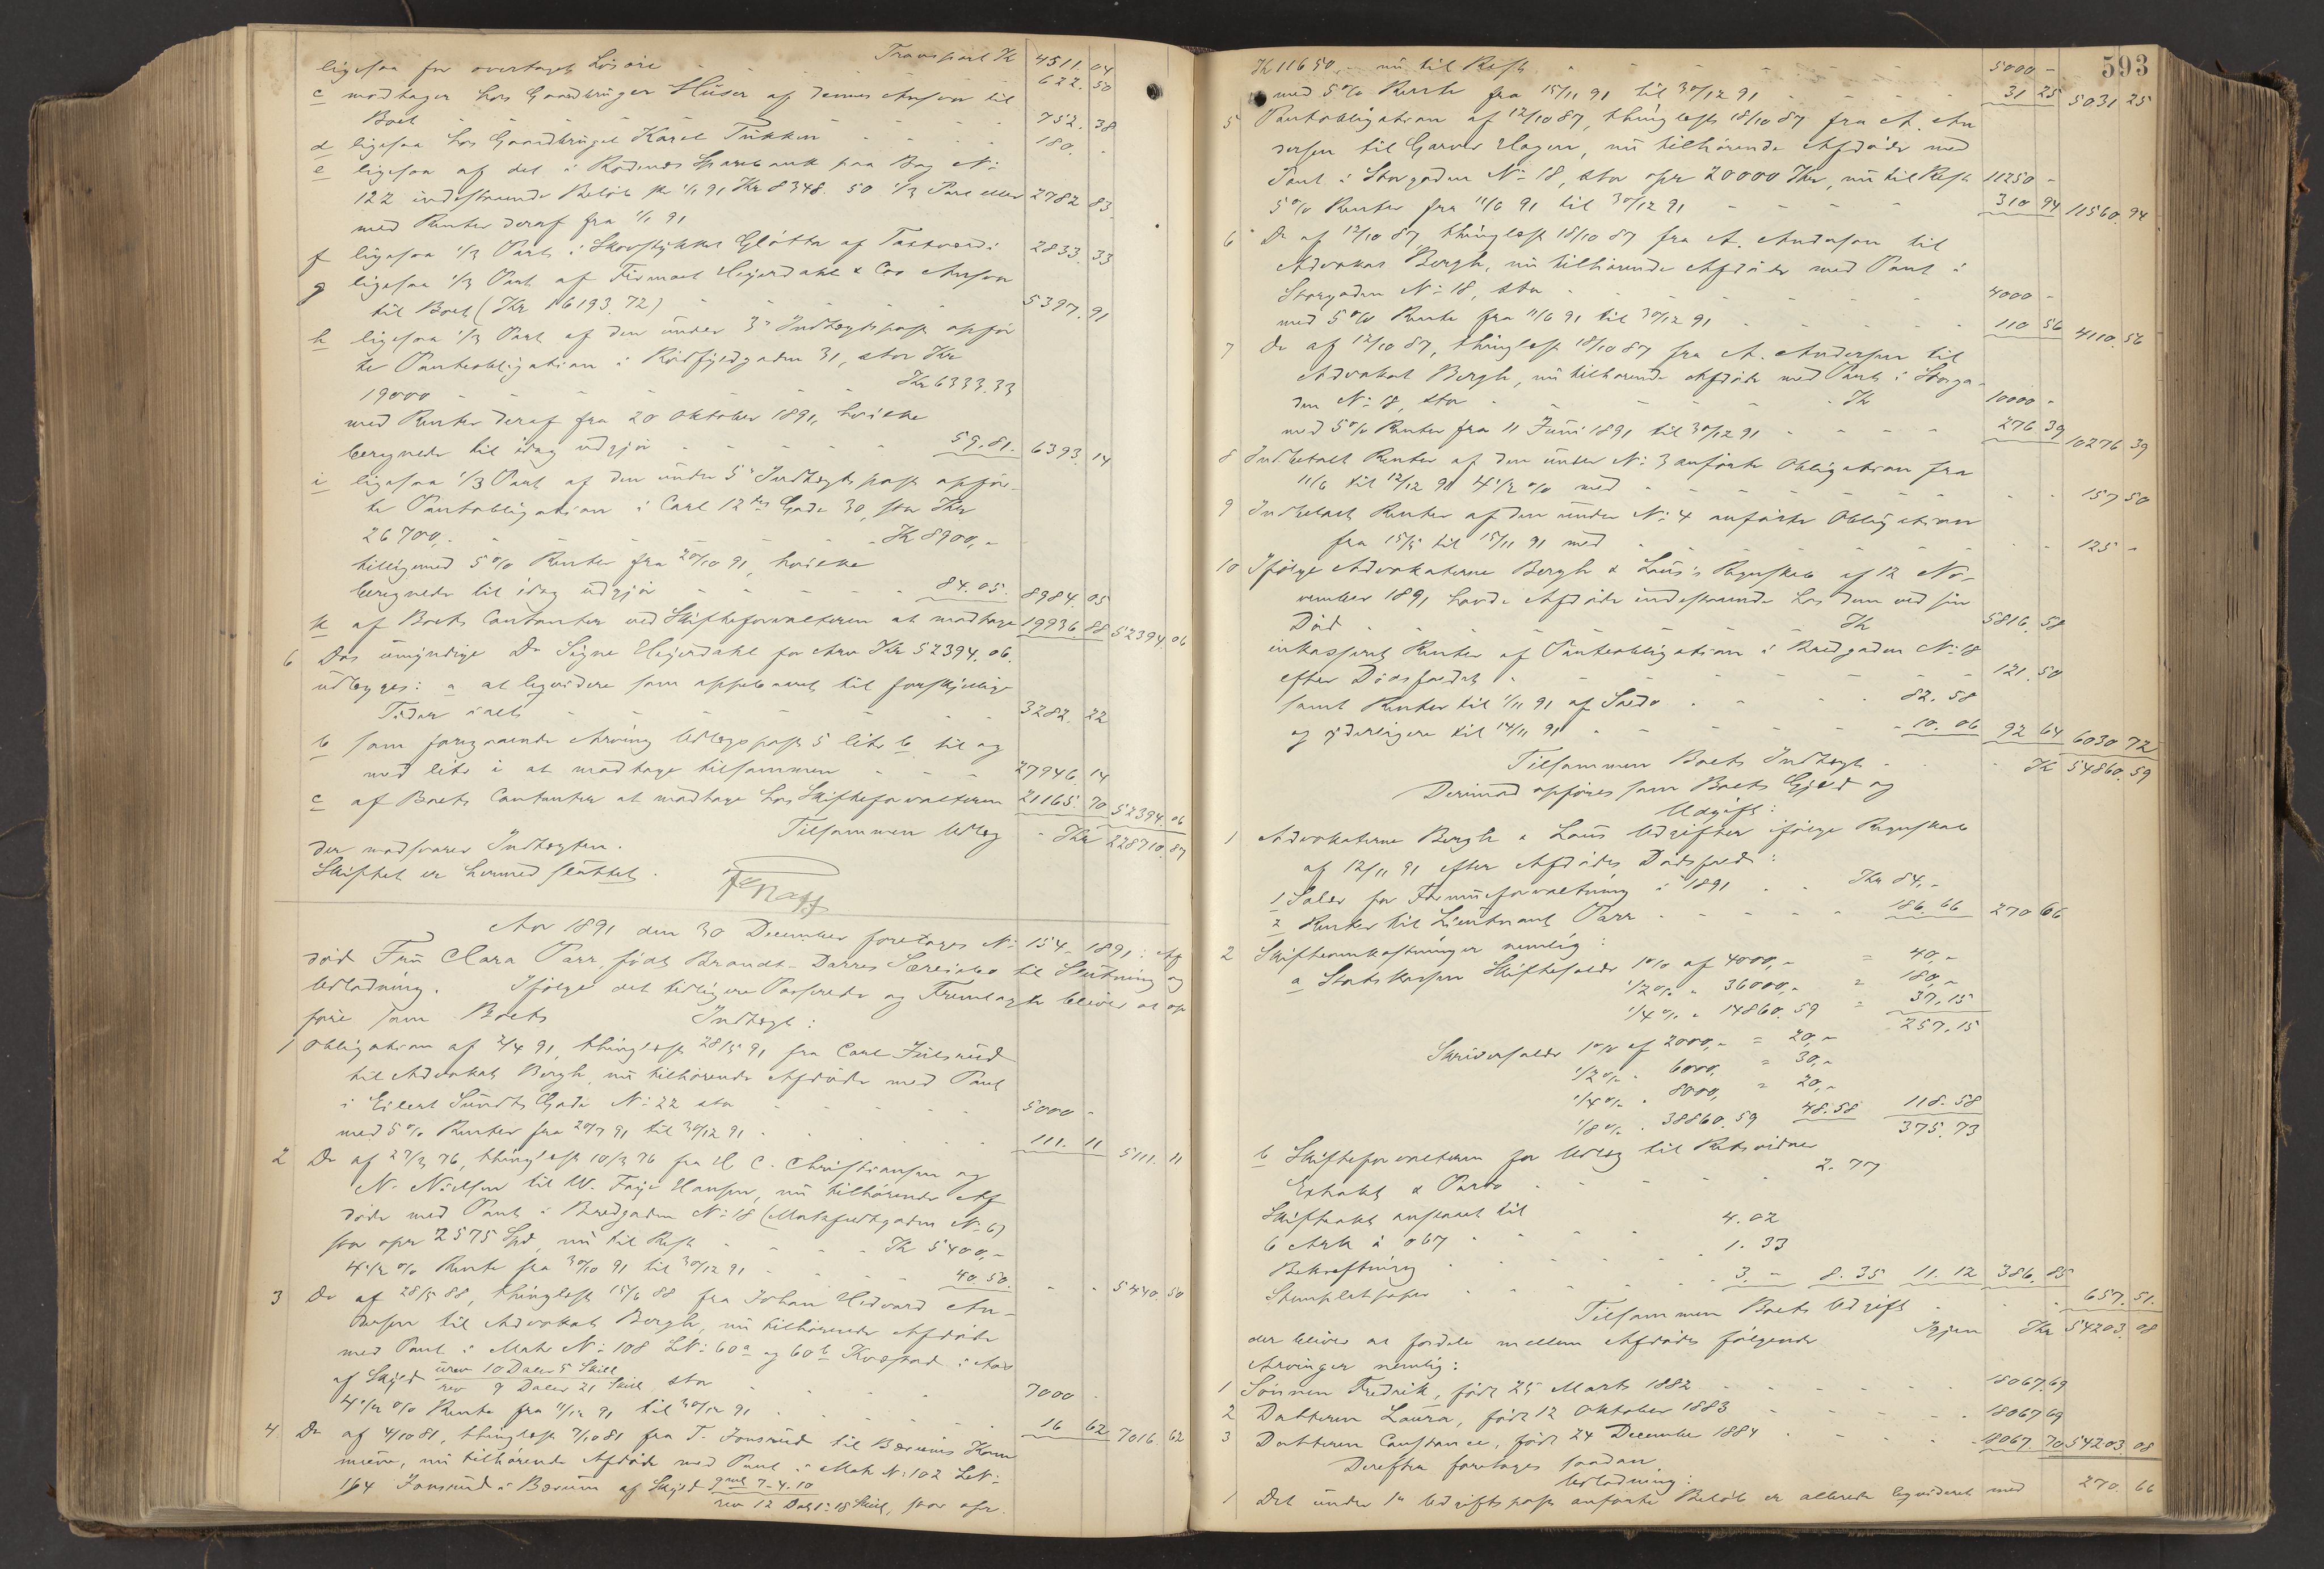 Transport Kr 4511.04
ligesaa for overtaget Lösöre - - - 622.50
c modtager hos Gaardbruger Huser af dennes Ansvar til
Boet - - - - - - 752.38
d ligesaa hos Gaardbruger Karel Tukken - - - 180.-
e ligesaa af det i Rödenes Sparebank paa Bog No
122 indestaaende Belöb pr 1/1 91 Kr 8348.50 1/3 Part eller 2782 83
med Renter deraf fra 1/1 91
f ligesaa 1/3 Part i Skovstykket Glötta af Tastvedi 2833.33
g ligesaa 1/3 Part af Firmaet Heyerdahl & Cos Ansvar
til Boet (Kr 16193.72) - - - - 5397.91
h ligesaa 1/3 Part af den under 3die Indtægtspost opför
te Panteobligation i Rödfyldgaden 31, stor Kr
19000 - - - - - Kr 6333.33
med Renter deraf fra 20 Oktober 1891, hvilke
beregnede til idag udgjör - - - 59.81. 6393.14
i ligesaa 1/3 Part af den under 5te Indtægtspost opför-
te Panteobligation i Carl 12tes Gade 30, stor Kr
26700,- - - - - - Kr 8900,-
tilligemed 5% Renter fra 20/10 91, hvilke
beregnede til idag udgjör - - - 84.05. 8984.05
k af Boets Contanter ved Skifteforvalteren at modtage 19936.88 52394.06
6 Den umyndige Do Signe Heyerdahl for Arv Kr 52394.06.
udlægges: a at liqvidere som oppebaaret til forskjellige
Tider i alt - - - - - 3282.22
b som foregaaende Arving Udlægspost 5 litr b til og
med litr i at modtage tilsammen - - - 27946.14
c af Boets Contanter at modtage hos Skifteforvalteren 21165.70 52394.06
Tilsammen Udlæg - Kr 228710.87
der modsvarer Indtægten.
Skiftet er hermed sluttet.
Aar 1891 den 30 December foretages No 154-1891: Af
död Fru Clara Parr, född Brandt-Darres Særeiebo til Slutning og
Udlodning. Ifölge det tidligere Passerede og Fremlagte bliver at op
före som Boets Indtægt:
1 Obligation af 2/4 91, thinglæst 28/5 91 fra Carl Julsrud
til Advokat Bergh, nu tilhörende Afdöde med Pant
i Eilert Sundts Gade No 22 stor - - - 5000 -
med 5% Renter fra 20/7 91 til 30/12 91 - - - 111.11 5111.11
2 Do af 27/2 76, thinglæst 10/3 76 fra H. C. Christiansen og
N. Nielsen til W. Faye Hansen, nu tilhörende Af
döde med Pant i Bredgaden No 18 (Markfeldtgaden No 6)
stor opr 2575 Spd, nu til Rest - - - Kr 5400,-
4 1/2 % Rente fra 30/10 91 til 30/12 91 - - - 40.50. - - 5440.50
3 Do af 28/5 88, thinglæst 15/6 88 fra Johan Hedvard An-
dersen til Advokat Bergh, nu tilhörende Afdöde
med Pant i Matr No 108 LNo 60a og 60b Kvæstad i Aas
af Skyld urev 10 Daler 5 Skill
rev 9 Daler 21 Skill stor - - - 7000 -
4 1/2 % Rente fra 11/12 91 til 30/12 91 - - - 16 62 7016.62
4 Do af 4/10 81, thinglæst 7/10 81 fra T. Jonsrud til Bærums Kom
mune, nu tilhörende Afdöde med Pant i Matr No 102 LNo
164 Jonsrud i Bærum af Skyld gml 7-4.10
rev 12 Dal 1: 18 Skill, stor opr.
593
Kr 11650,- nu til Rest - - - 5000 -
med 5% Rente fra 15/11 91 til 30/12 91 - - - 31 25 5031 25
5 Panteobligation af 12/10 87, thinglæst 18/10 87 fra A. An
dersen til Garver Hagen, nu tilhörende Afdöde med
Pant i Storgaden No 18, stor opr 20000 Kr, nu til Rest 11250 -
5% Renter fra 11/6 91 til 30/12 91 - - - 310 94 11560.94
6 Do af 12/10 87, thinglæst 18/10 87 fra A. Andersen til
Advokat Bergh, nu tilhörende Afdöde med Pant i
Storgaden No 18, stor - - - 4000 -
med 5% Rente fra 11/6 91 til 30/12 91 - - - 110 56 4110.56
7 Do af 12/10 87, thinglæst 18/10 87 fra A. Andersen til
Advokat Bergh, nu tilhörende Afdöde med Pant i Storga-
den No 18, stor - - - Kr 10000 -
med 5% Renter fra 11 Juni 1891 til 30/12 91 - - - 276.39 10276 39
8 Indbetalt Renter af den under No 3 anförte Obligation fra
11/6 til 12/12 91 4 1/2 % med - - - 157 50
9 Indbetalt Renter af den under No 4 anförte Obligation
fra 15/5 til 15/11 91 med - - - 125 -
10 Ifölge Advokaterne Bergh & Laus's Regnskab af 12 No-
vember 1891 havde Afdöde indestaaende hos dem ved sin
Död - - - Kr 5816.58
inkasseret Renter af Panteobligation i Bredgaden No 18
efter Dödsfaldet - - - 121.50
samt Renter til 1/11 91 af Saldo - - - 82.58
og yderligere til 14/11 91 - - - 10.06 92 64 6030 72
Tilsammen Boets Indtægt - - Kr 54860.59
Derimod opföres som Boets Gjæld og
Udgift:
1 Advokaterne Bergh & Laus Udgifter ifölge Regnskab
af 12/11 91 efter Afdödes Dödsfald:
1 Salær for Formueforvaltning i 1891 - - Kr 84,-
2 Renter til Lieutnant Parr - - - 186.66 270 66
2 Skifteomkostninger nemlig:
a Statskassen Skiftesalær 1% af 4000,- = 40,-
1/2 % " 36000,- = 180,-
1/4 % " 14860.59 = 37.15
257.15
Skriversalær 1% af 2000,- = 20,-
1/2 % " 6000, = 30,-
1/4 % " 8000, = 20,-
1/8 % " 38860.59 48.58 118.58
375.73
b Skifteforvalteren for Udlæg til Retsvidner
Extrakt & Porto - - - 2.77
Skifteakt anslaaet til
6 Ark à 067 - - - 4.02
Bekræftning - - - 1.33
Stemplet papir - - - 3.- 8.35 11.12 386.85
Tilsammen Boets Udgift - - - 657.51.
Igjen Kr 54203.08
der bliver at fordele mellem Afdödes fölgende
Arvinger nemlig:
1 Sönnen Fredrik, född 25 Marts 1882 - - - 18067.69
2 Datteren Laura, född 12 Oktober 1883 - - - 18067 69
3 Datteren Constance, född 24 December 1884 - - - 18067.70 54203.08
Derefter foretages saadan
Udlodning:
1 Det under 1ste Udgiftspost anförte Belöb er allerede liqvideret med 270.66